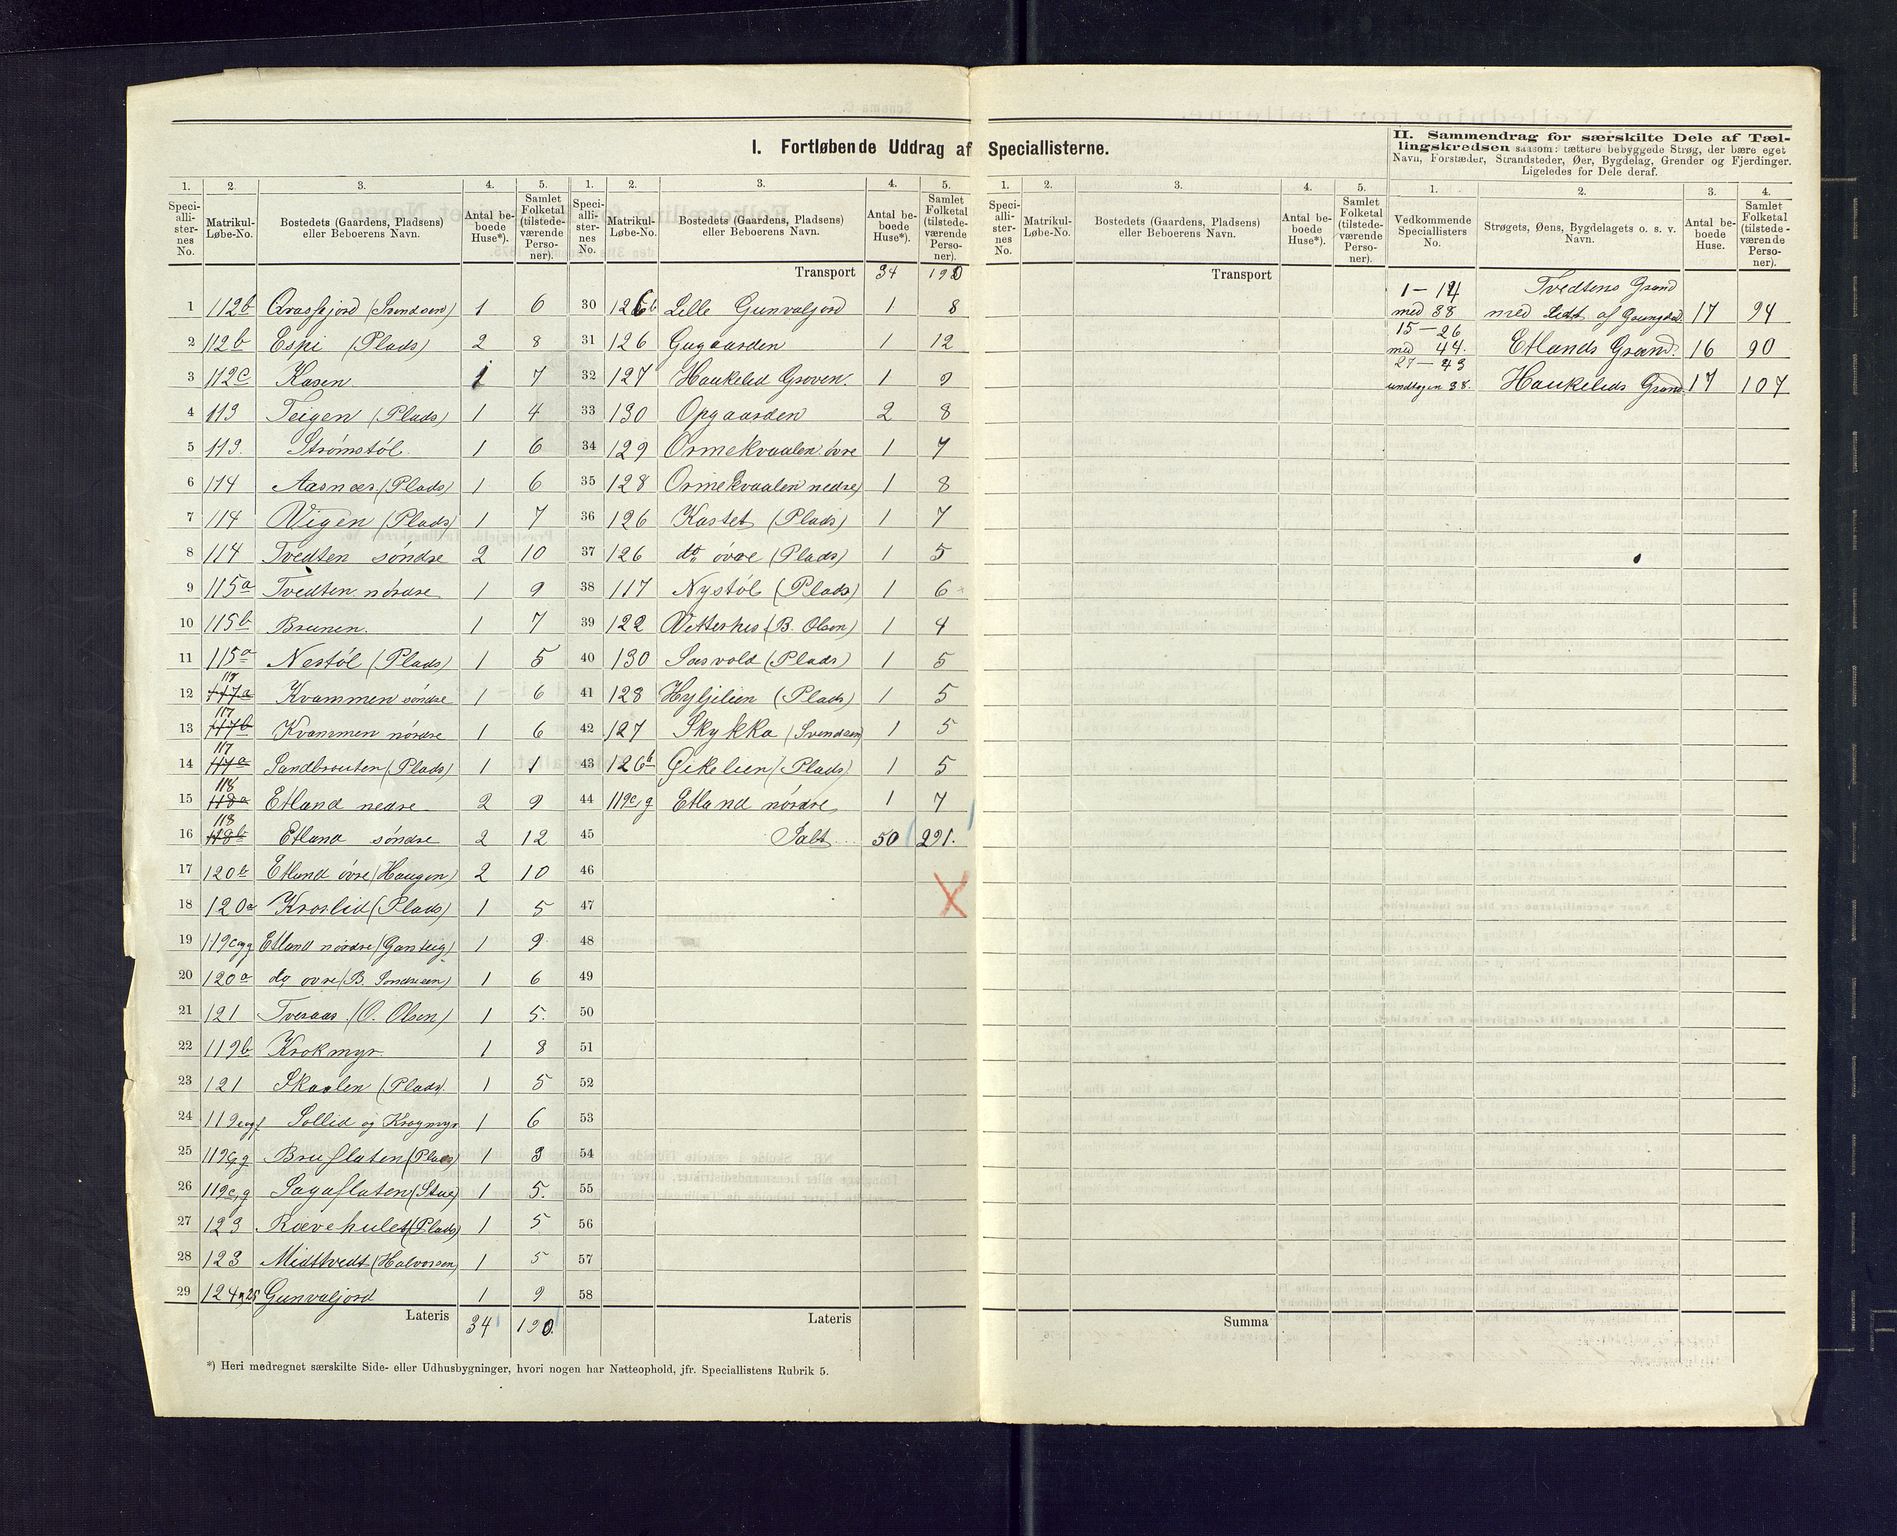 I. Fortløbende Uddrag af Speciallisterne.
II. Sammendrag for særskilte Dele af Tællingskredsen saasom: tættere bebyggede Strøg, der bære eget Navn, Forstæder, Strandsteder, Øer, Bygdelag, Grender og Fjerdinger. Ligeledes for Dele deraf.
1. 2. 3. 4. 5. 1. 2. 3. 4. 5. 1. 2. 3. 4. 5. 1. 2. 3. 4.
Speciallisternes No. Matrikul-Løbe-No. Bostedets (Gaardens, Pladsens) eller Beboerens Navn. Antal beboede Huse*). Samlet Folketal (tilstedeværende Personer).
Speciallisternes No. Matrikul-Løbe-No. Bostedets (Gaardens, Pladsens) eller Beboerens Navn. Antal beboede Huse*). Samlet Folketal (tilstedeværende Personer).
Speciallisternes No. Matrikul-Løbe-No. Bostedets (Gaardens, Pladsens) eller Beboerens Navn. Antal beboede Huse*). Samlet Folketal (tilstedeværende Personer).
Vedkommende Speciallisters No. Strøgets, Øens, Bygdelagets o. s. v. Navn. Antal beboede Huse. Samlet Folketal (tilstedeværende Personer).
1 112b (Svendsen) 1 6
2 112b Espi (Plads) 2 8
3 112c Kasen 1 7
4 113 Teigen (Plads) 1 4
5 113. Strømstøl 1 6
6 114 Aasnæs (Plads) 1 6
7 114 Vigen (Plads) 1 7
8 114 Tvedten søndre 2 10
9 115a Tvedten nørdre 1 9
10 115b Brunen. 1 7
11 115a Nestøl (Plads) 1 5
12 117 117a Kvammen søndre 1 6
13 117 117b Kvammen nørdre 1 6
14 117 117a Sandbrouten (Plads) 1 1
15 118 118a Etland nedre 2 9
16 118 118b Etland søndre 2 12
17 120b Etland øvre (Haugen) 2 10
18 120a Kroslid (Plads) 1 5
19 119c og g Etland nørdre (Gansteig) 1 9
20 120a do øvre (B. Sondresen) 1 6
21 121 Tveraas (O. Olsen) 1 5.
22 119b Krokmyr. 1 8
23 121 Skaalen (Plads) 1 5
24 119 Sollid og Krogmyr 1 6
25 119c,g Bruflaten (Plads) 1 3
26 119c,g Sagaflaten (Stue) 1 5.
27 123 Rævehulet (Plads) 1 5
28 123 Midttvedt (Halvorsen) 1 5
29 124 og 25 Gunvaljord 1 9
Lateris 34 190
Transport 34 190
30 126b Lille Gunvaljord 1 8
31 126 Gugaarden 1 12
32 127 Haukelid Groven. 1 9
33 130 Opgaarden 2 8
34 129 Ormekvaalen øvre 1 7
35 128 Ormekvaalen nedre 1 8
36 126 Kastet (Plads) 1 7
37 126 do øvre (Plads) 1 5
38 117 Nystøl (Plads) 1 6
39 122 (B. Olsen) 1 4
40 130 Sasvold (Plads) 1 5
41 128 Hyljelien (Plads) 1 5
42 127 Skykka (Svendsen) 1 5
43 126b Eikelien (Plads) 1 5
44 119c, g Etland nørdre 1 7
45 Ialt... 50 291.
46
47
48
49
50
51
52
53
54
55
56
57
58
Lateris
Transport
Summa
1 – 14 Tvedtens Grænd
med 38 med Lidt af 17 94
15 – 26
med 44. Etlands Grænd. 16 90
27 – 43
undtagen 38. Haukelids Grænd 17 107
*) Heri medregnet særskilte Side- eller Udhusbygninger, hvori nogen har Natteophold, jfr. Speciallistens Rubrik 5.